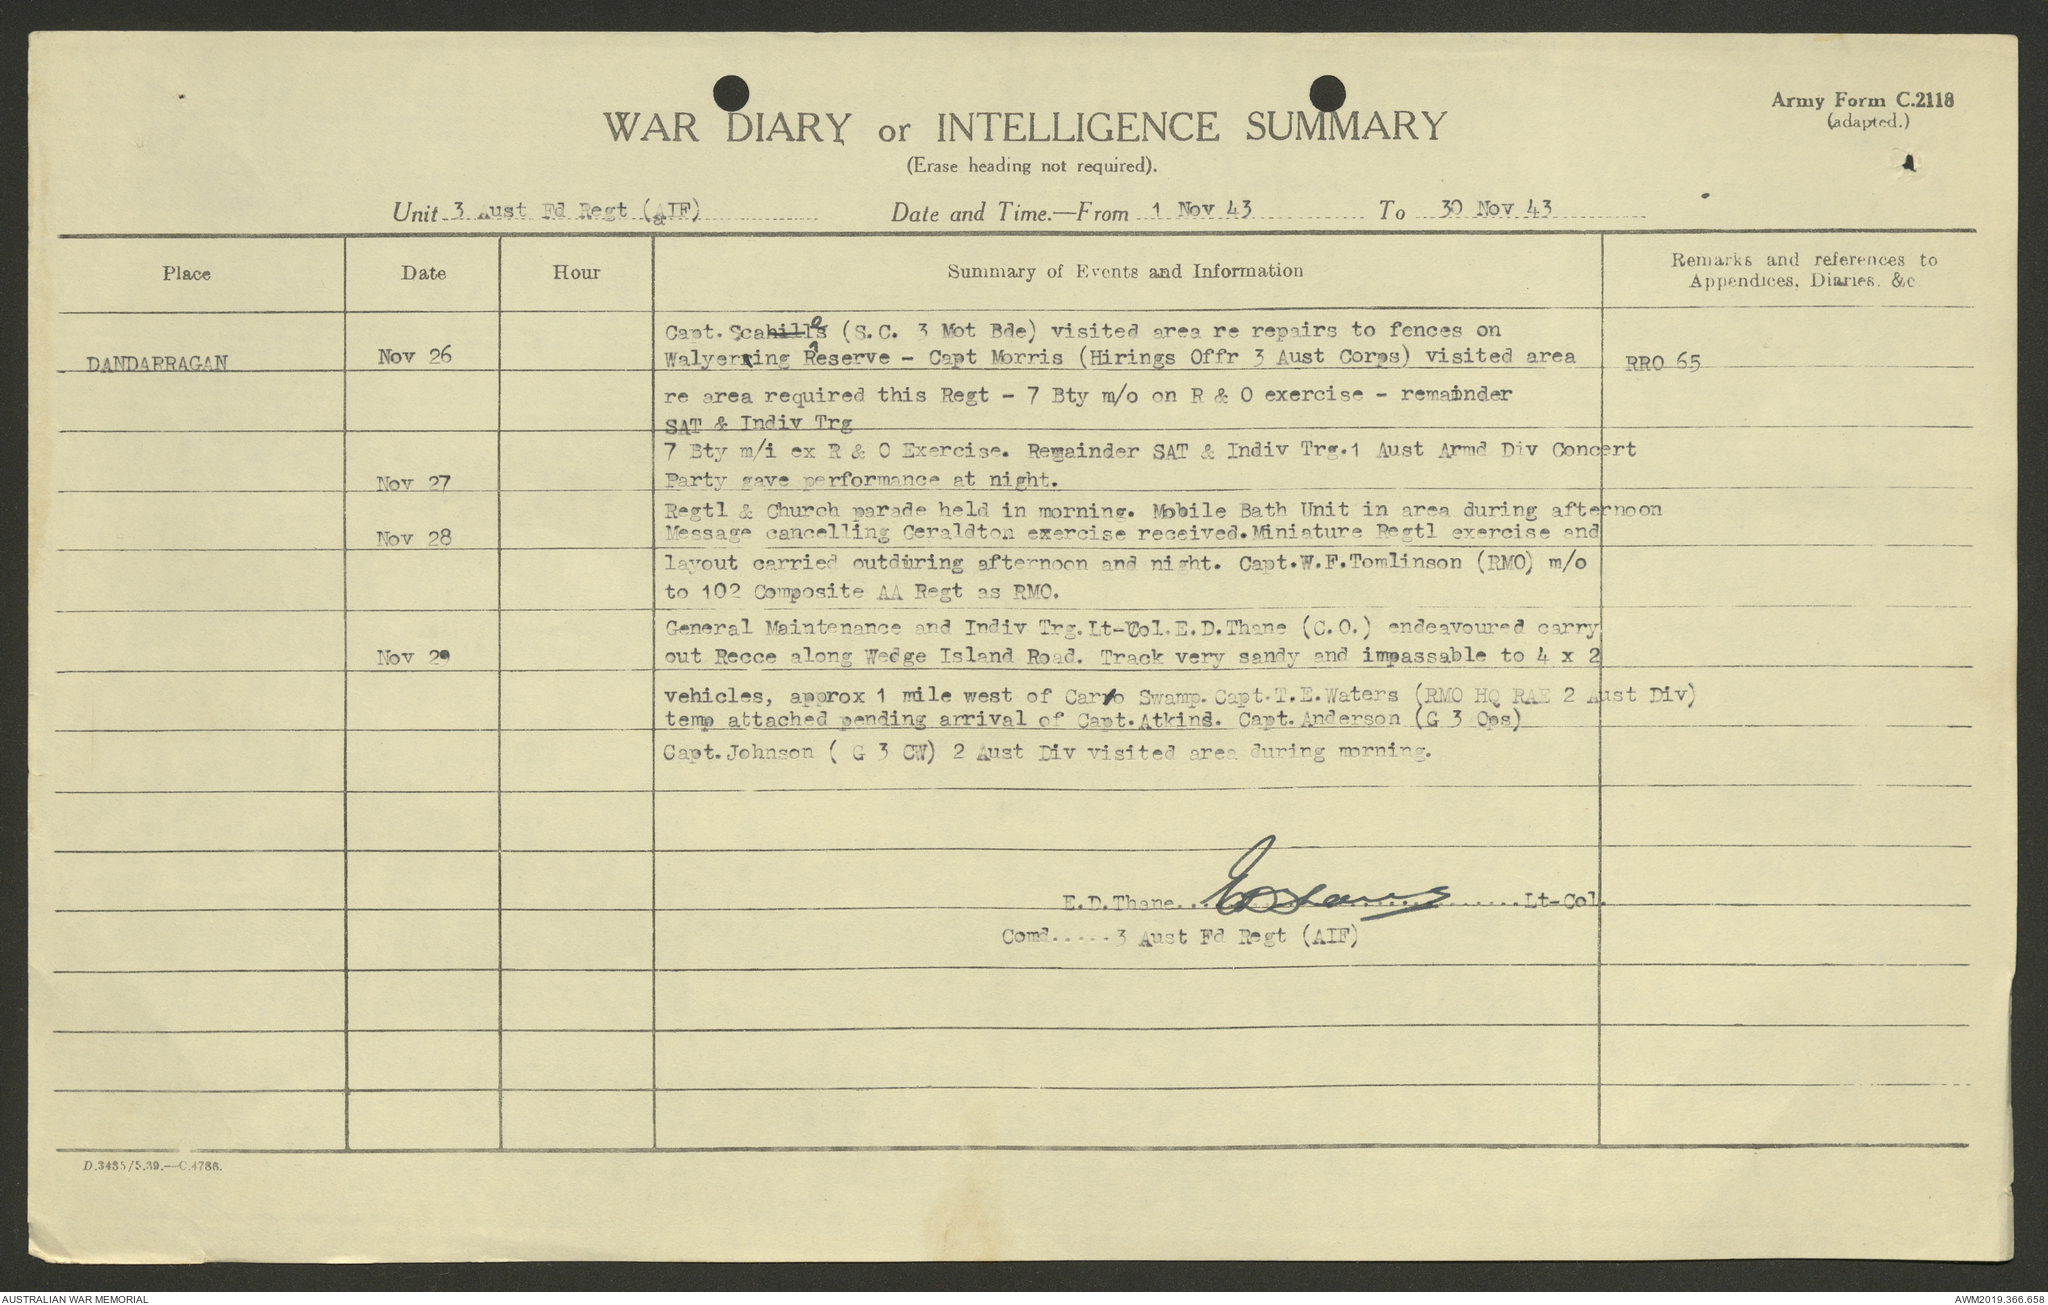 Army Form C.2118
(adapted.)
WAR DIARY or INTELLIGENCE SUMMARY
(Erase heading not required).
Unit 3 Aust Fd Regt (AIF) Date and Time.—From 1 Nov 43 To 30 Nov 43
Place Date Hour Summary of Events and Information Remarks and references to
Appendices, Diaries, &c
Capt. (S.C. 3 Mot Bde) visited area re repairs to fences on
DANDARRAGAN Nov 26 Walyering Reserve - Capt Morris (Hirings Offr 3 Aust Corps) visited area RRO 65
re area required this Regt - 7 Bty m/o on R & O exercise - remainder
SAT & Indiv Trg
7 Bty m/i ex R & O Exercise. Remainder SAT & Indiv Trg. 1 Aust Armd Div Concert
Nov 27 Party gave performance at night.
Regtl & Church parade held in morning. Mobile Bath Unit in area during afternoon
Nov 28 Message cancelling Geraldton exercise received. Miniature Regtl exercise and
layout carried outduring afternoon and night. Capt.W.F.Tomlinson (RMO) m/o
to 102 Composite AA Regt as RMO.
General Maintenance and Indiv Trg. Lt-Col.E.D.Thane (C.O.) endeavoured carry
Nov 29 out Recce along Wedge Island Road. Track very sandy and impassable to 4 x 2
vehicles, approx 1 mile west of Caro Swamp. Capt.T.E.Waters (RMO HQ RAE 2 Aust Div)
temp attached pending arrival of Capt.Atkins. Capt.Anderson (G 3 Ops)
Capt.Johnson ( G 3 CW) 2 Aust Div visited area during morning.
E.D.Thane..................Lt-Col.
Comd.....3 Aust Fd Regt (AIF)
D.3435/5.39.—C.4786.
AUSTRALIAN WAR MEMORIAL AWM2019.366.658